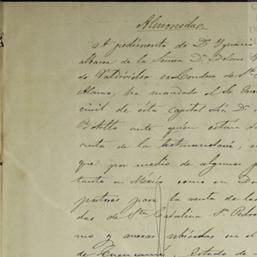 Almonedas.
A pedimento de D. Ygnacio
albacea de la Señora Dª Dolores
de Valdivielso
Alamo, ha mandado el S. Juez
civil de esta capital Lic. D.
Botello ante quien
venta de la testamentaria,
que por medio de algunos
tanto en México como en Du
postores para la venta de las
das de Sta Catalina Sn Pedro
mo y anexas ubicadas en el
de Cuencamé, Estado de